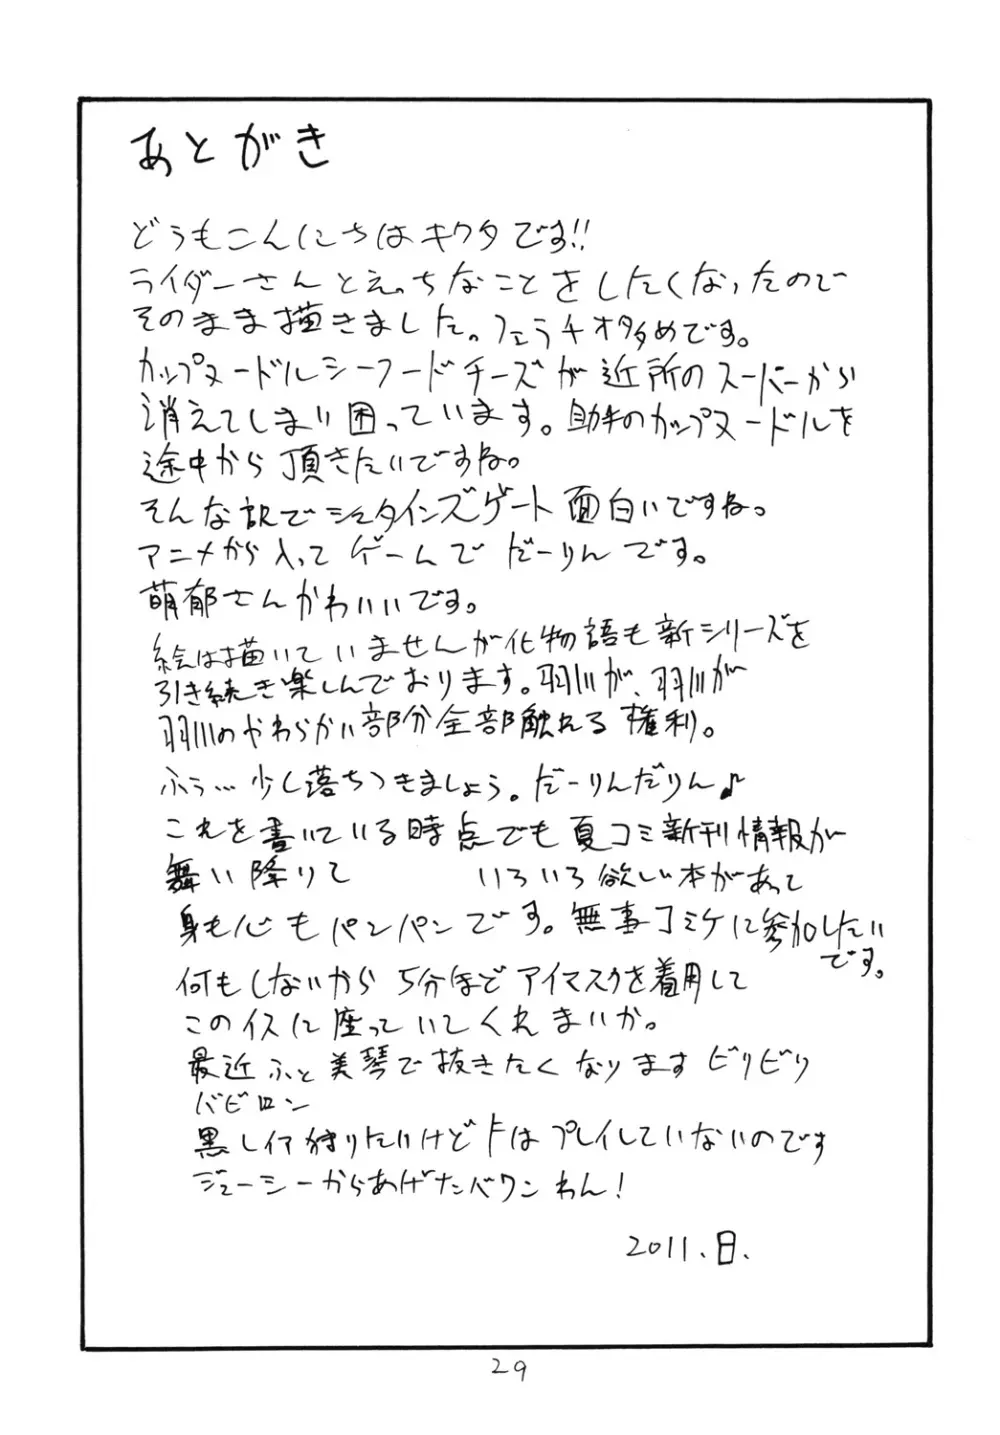 あとがき
どうもこんにちはキクタです!!
ライダーさんとえっちなことをしたくなったので
そのまま描きました。フェラチオ多めです。
カップヌードルシーフードチーズが近所のスーパーから
消えてしまい困っています。助手のカップヌードルを
途中から頂きたいですね。
そんな訳でシュタインズゲート面白いですね。
アニメから入ってゲームでだーりんです。
萌郁さんかわいいです。
絵は描いていませんが化物語も新シリーズを
引き続き楽しんでおります。羽川が、羽川が
羽川のやわらかい部分全部触れる権利。
ふぅ…少し落ちつきましょう。だーりんだりん♪
これを書いている時点でも夏コミ新刊情報が
舞い降りて いろいろ欲しい本があって
身も心もパンパンです。無事コミケに参加したい
です。
何もしないから5分ほどアイマスクを着用して
このイスに座っていてくれまいか。
最近ふと美琴で抜きたくなりますビリビリ
バビロン
黒レイア狩りたいけどFはプレイしていないのです
ジューシーからあげたバワンわん!
2011.日.
29